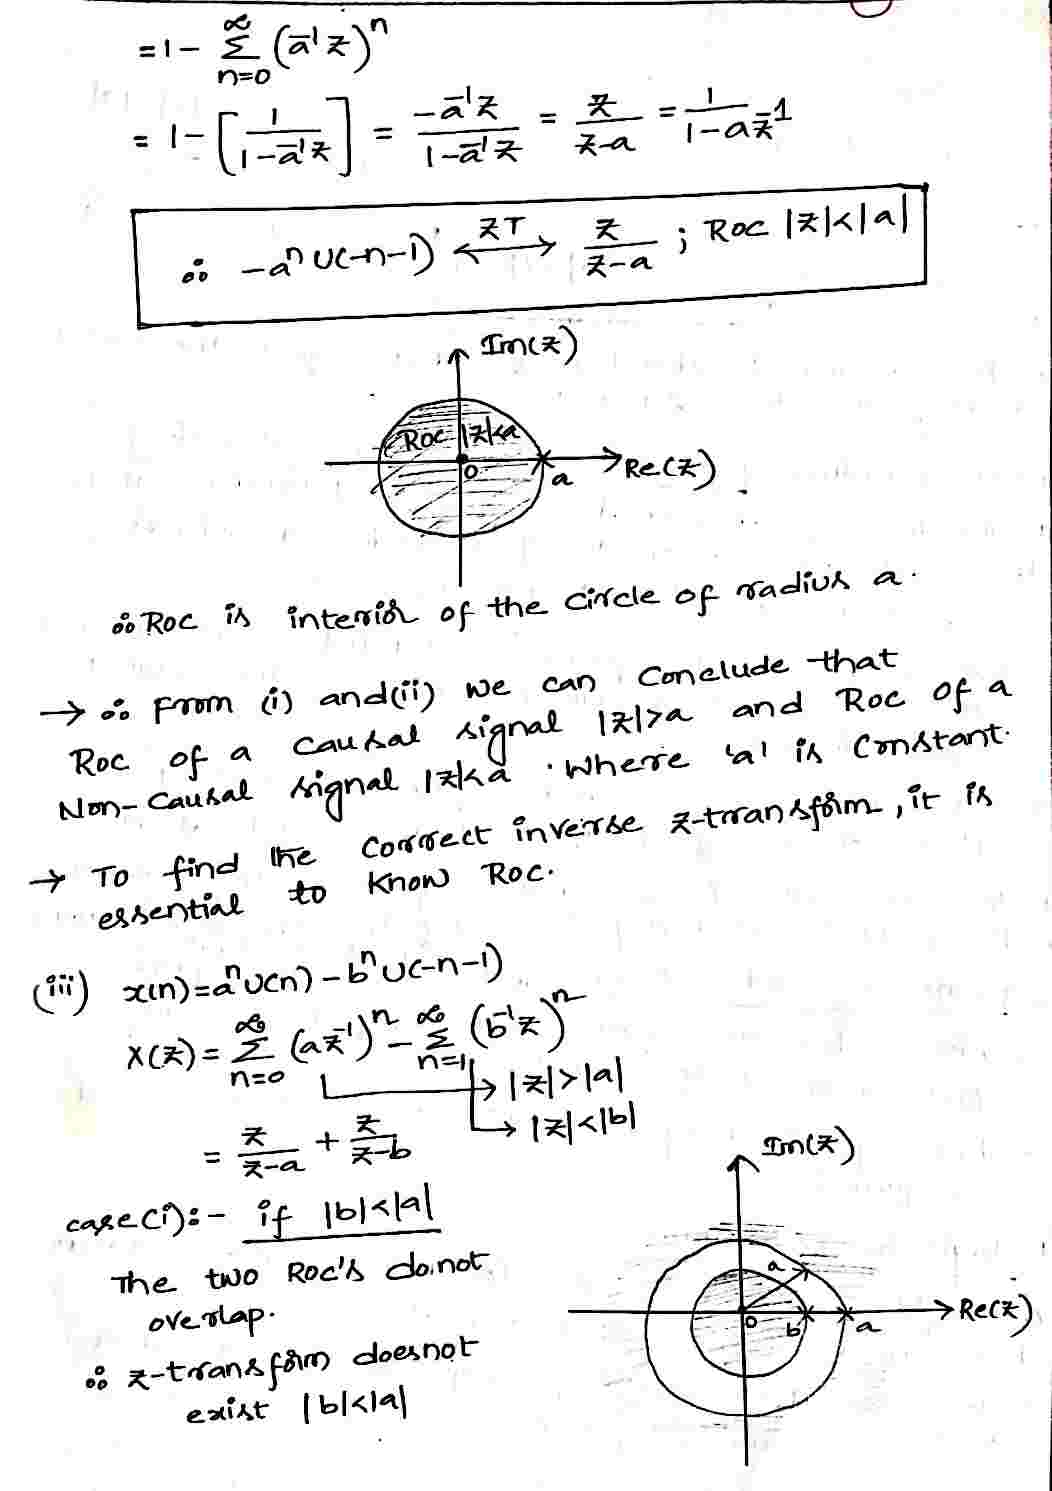 = 1 - ∑_{n=0}^{∞} (a⁻¹z)ⁿ
= 1 - [1/(1-a⁻¹z)] = -a⁻¹z/(1-a⁻¹z) = z/(z-a) = 1/(1-az⁻¹)
∴ -aⁿ u(-n-1) ⟷^{ZT} z/(z-a) ; ROC |z|<|a|
Im(z)
ROC |z|<a
0
a
Re(z)
∴ ROC is interior of the circle of radius a.
→ ∴ From (i) and (ii) we can conclude that
ROC of a causal signal |z|>a and ROC of a
Non-causal signal |z|<a . Where 'a' is constant.
→ To find the correct inverse z-transform, it is
essential to know ROC.
(iii) x(n) = aⁿu(n) - bⁿu(-n-1)
X(z) = ∑_{n=0}^{∞} (az⁻¹)ⁿ - ∑_{n=1}^{∞} (b⁻¹z)ⁿ
→ |z|>|a|
→ |z|<|b|
= z/(z-a) + z/(z-b)
Im(z)
case(i):- if |b|<|a|
The two ROC's do not
overlap.
a
0
b
a
Re(z)
∴ z-transform does not
exist |b|<|a|